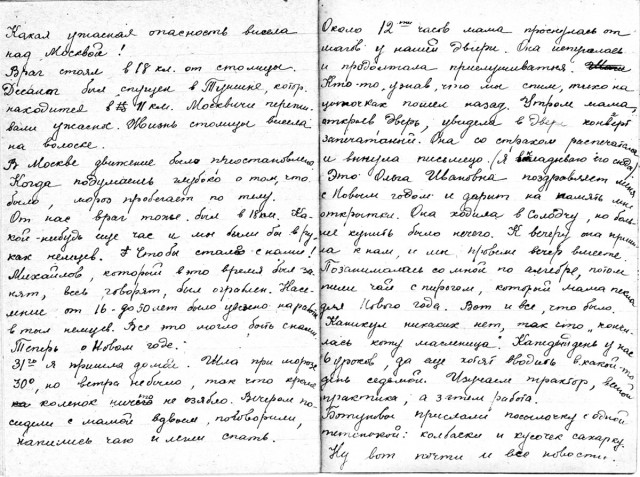 Какая ужасная опасность висела
над Москвой!
Враг стоял в 18 км. от столицы.
Десант был спущен в Тушине, котор.
находится в 11 км. Москвичи пережи-
вали ужасное. Жизнь столицы висела
на волоске.
В Москве движение было приостановлено.
Когда подумаешь глубоко о том, что
было, мороз пробегает по телу.
От нас враг тоже был в 18 км. Ка-
кой-нибудь еще час и мы были бы в ру-
ках немцев. Чтобы сталось с нами!
Михайлов, который в то время был за-
нят, весь, говорят, был ограблен. Насе-
ление от 16-до 50 лет было угнано
в тыл немцев. Все это могло быть с нами
Теперь о Новом годе:
31го я пришла домой. Шла при морозе
30°, но ветра не было, так что кроме
коленок ничего не озябло. Вечером по-
сидели с мамой вдвоем, поговорили,
напились чаю и легли спать.
Около 12ти часов мама проснулась от
шагов у нашей двери. Она испугалась
и продолжала прислушиваться.
Кто-то, узнав, что мы спим, тихо на
цыпочках пошел назад. Утром мама,
открыв дверь, увидела в двери конверт
запечатанный. Она со страхом распечатала
и вынула письмецо. (Я вкладываю его сюда)
Это Ольга Ивановна поздравляет меня
с Новым годом и дарит на память мне
открытки. Она ходила в Солодчу, но боль-
ше купить было нечего. К вечеру она пришла
к нам, и мы провели вечер вместе.
Позанималась со мной по алгебре, потом
пили чай с пирогом, который мама пекла
для Нового года. Вот и все, что было.
Каникул никаких нет, так что "кончи-
лась коту масленица". Каждый день у нас
6 уроков, да еще хотят вводить в какой-то
день седьмой. Изучаем трактор, весной
практика, а затем работа.
прислали посылочку с одной
: колбаски и кусочек сахарку.
Ну вот почти и все новости.